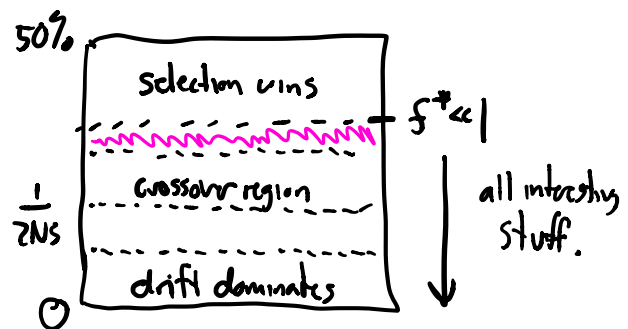 50%
selection wins
f* << 1
crossover region
1/2NS
all interesting
stuff.
drift dominates
0